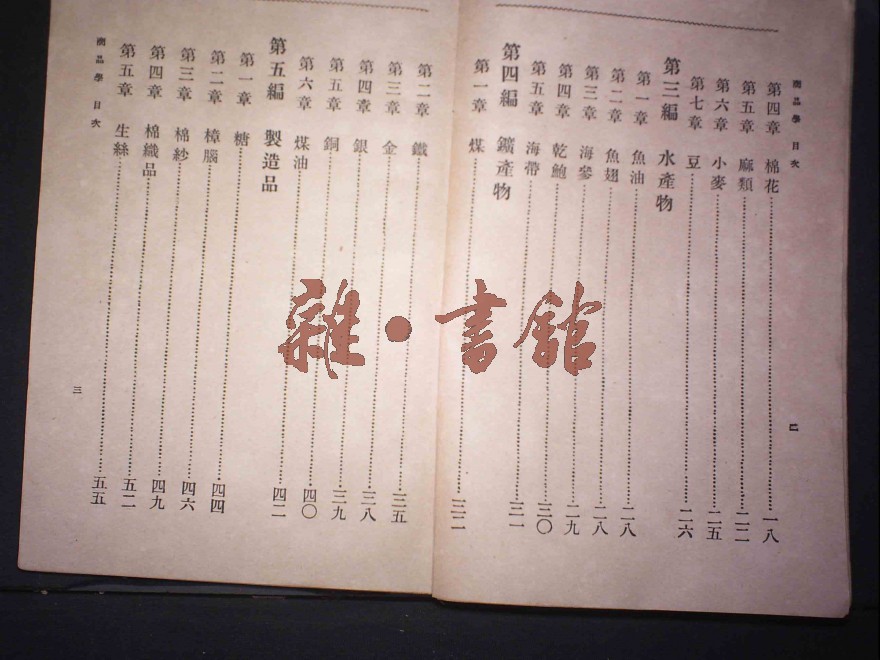 商品學 目次
第四章 棉花……一八
第五章 麻類……二二
第六章 小麥……二五
第七章 豆……二六
第三編 水產物
第一章 魚油……二八
第二章 魚翅……二八
第三章 海參……二九
第四章 乾鮑……三〇
第五章 海帶……三一
第四編 鑛產物
第一章 煤……三二
二
第二章 鐵……三五
第三章 金……三八
第四章 銀……三九
第五章 銅……四〇
第六章 煤油……四二
第五編 製造品
第一章 糖……四四
第二章 樟腦……四六
第三章 棉紗……四九
第四章 棉織品……五二
第五章 生絲……五五
商品學 目次
三
雜·書館